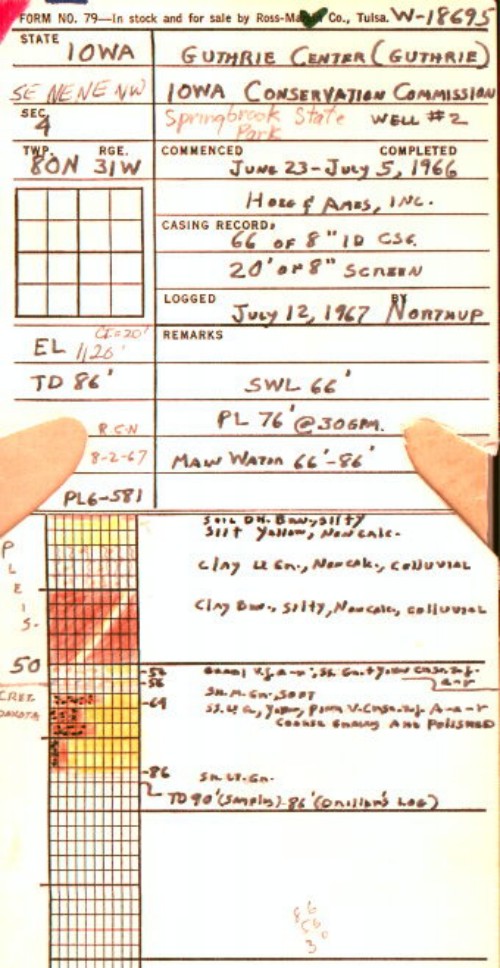 FORM NO. 79—In stock and for sale by Ross-Martin Co., Tulsa. W-18695
STATE IOWA
GUTHRIE CENTER (GUTHRIE)
SE NE NE NW
IOWA CONSERVATION COMMISSION
SEC. 4
Springbrook State Park WELL #2
TWP. 80N RGE. 31W
COMMENCED COMPLETED
JUNE 23-JULY 5, 1966
& AMES, INC.
CASING RECORD:
66 OF 8" ID CSG.
20' OF 8" SCREEN
LOGGED BY
JULY 12, 1967 NORTHUP
EL 1126' CI=20'
REMARKS
TD 86'
SWL 66'
R.C.N
PL 76' @ 30GPM.
8-2-67
MAIN WATER 66'-86'
PL6-581
SOIL DK. BRN, SILTY
SILT YELLOW, NONCALC.
PLEIS.
CLAY LT GN., NONCALC., COLLUVIAL
CLAY BRN., SILTY, NONCALC, COLLUVIAL
50
-56
SH. M. GN., SOFT
CRET.
DAKOTA
-64
COARSE GRAINS ARE POLISHED
-86
SH. LT. GN.
TD 90' (SAMPLES) - 86' (DRILLER'S LOG)